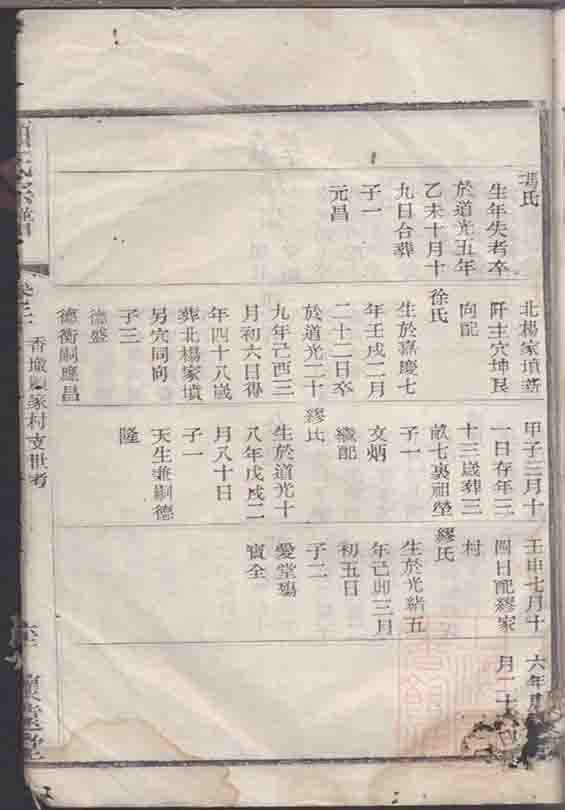 馮氏
生年失考卒
於道光五年
乙未十月十
九日合葬
子一
元昌
北楊家墳新
阡主穴坤艮
向配
徐氏
生於嘉慶七
年壬戌二月
二十二日卒
於道光二十
九年己酉三
月初六日得
年四十八歲
葬北楊家墳
另穴同向
子三
德盛
德衡嗣應昌
甲子三月十
一日存年三
十三歲葬三
畝七裏祖塋
子一
文炳
繼配
繆氏
生於道光十
八年戊戌二
月八十日
子一
天生兼嗣德
隆
壬申七月十
四日配繆家
村
繆氏
生於光緒五
年己卯三月
初五日
子二
愛堂殤
寶全
六年
月二十
氏宗譜
卷三
香墩
家村支世考